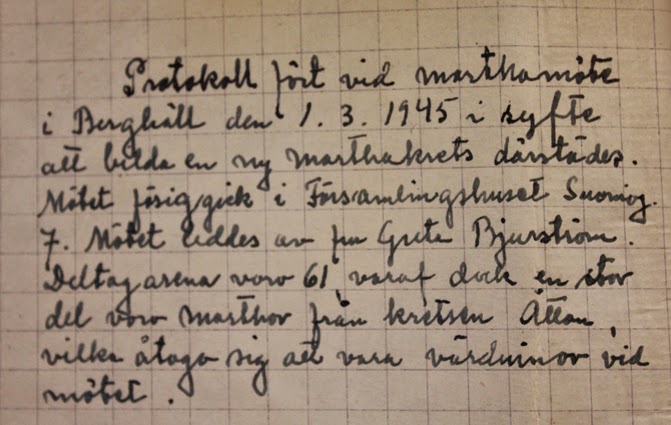 Protokoll fört vid marthamöte
i Berghäll den 1. 3. 1945 i syfte
att bilda en ny marthakrets därstädes.
Mötet försiggick i Församlingshuset Suomiog.
7. Mötet leddes av fru Greta Bjurström.
Deltagarena voro 61, varaf dock en stor
del voro marthor från kretsen Ättan,
vilka åtogo sig att vara värdinnor vid
mötet.